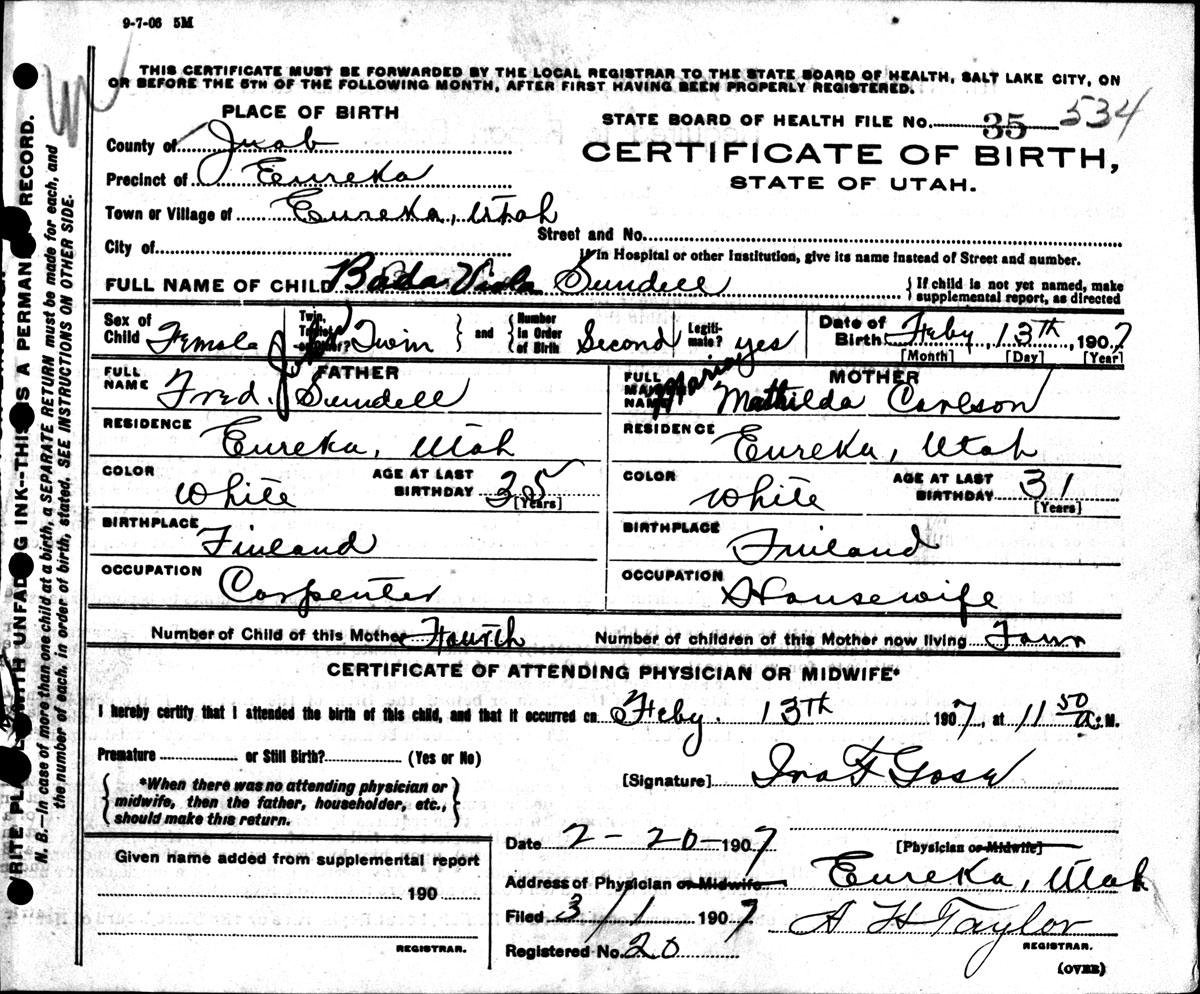 9-7-06 5M
THIS CERTIFICATE MUST BE FORWARDED BY THE LOCAL REGISTRAR TO THE STATE BOARD OF HEALTH, SALT LAKE CITY, ON
OR BEFORE THE 5TH OF THE FOLLOWING MONTH, AFTER FIRST HAVING BEEN PROPERLY REGISTERED.
PLACE OF BIRTH
County of Juab
Precinct of Eureka
Town or Village of Eureka, Utah
City of
STATE BOARD OF HEALTH FILE No. 35 534
CERTIFICATE OF BIRTH,
STATE OF UTAH.
Street and No.
If in Hospital or other Institution, give its name instead of Street and number.
FULL NAME OF CHILD Viola Sundell
If child is not yet named, make
supplemental report, as directed
Sex of Child Female
Twin, Triplet or Other? Twin
and
Number in Order of Birth Second
Legiti-mate? yes
Date of Birth Feby. 13th, 1907
[Month] [Day] [Year]
FATHER
FULL NAME Fred. John Sundell
RESIDENCE Eureka, Utah
COLOR White
AGE AT LAST BIRTHDAY 35
[Years]
BIRTHPLACE Finland
OCCUPATION Carpenter
MOTHER
FULL MAIDEN NAME Maria Mathilda Carlson
RESIDENCE Eureka, Utah
COLOR White
AGE AT LAST BIRTHDAY 31
[Years]
BIRTHPLACE Finland
OCCUPATION Housewife
Number of Child of this Mother Fourth
Number of children of this Mother now living Four
CERTIFICATE OF ATTENDING PHYSICIAN OR MIDWIFE*
I hereby certify that I attended the birth of this child, and that it occurred on Feby. 13th 1907, at 11 50 a. M.
Premature or Still Birth? (Yes or No)
*When there was no attending physician or
midwife, then the father, householder, etc.,
should make this return.
[Signature]
Given name added from supplemental report
190
REGISTRAR.
Date 2-20-1907
[Physician or Midwife]
Address of Physician or Midwife Eureka, Utah
Filed 3/1 1907
A H Taylor
REGISTRAR.
Registered No. 20
(OVER)
WRITE PLAINLY WITH UNFADING INK--THIS IS A PERMANENT RECORD.
N. B.--In case of more than one child at a birth, a SEPARATE RETURN must be made for each, and
the number of each, in order of birth, stated. SEE INSTRUCTIONS ON OTHER SIDE.